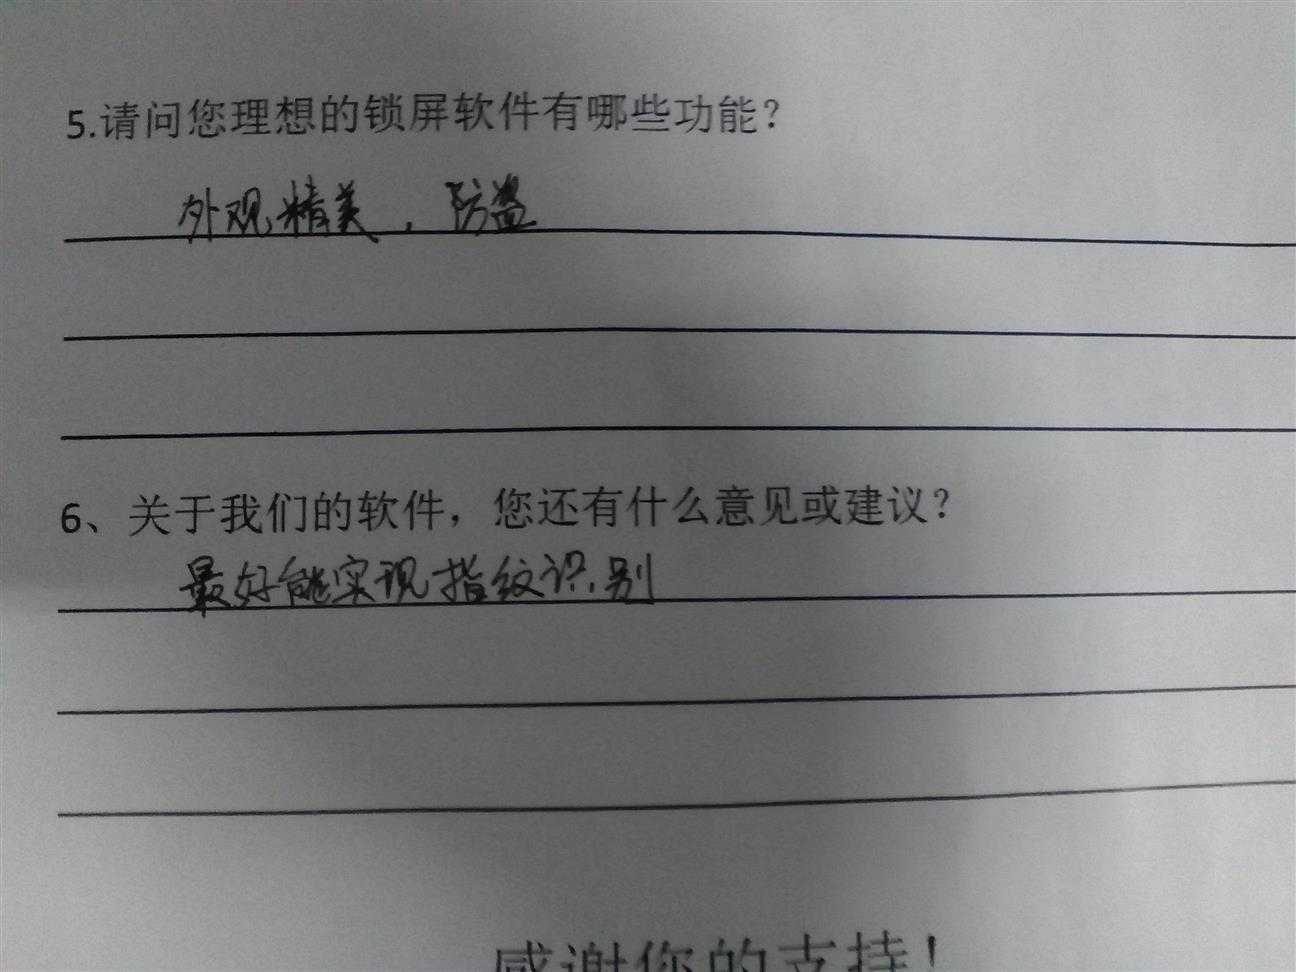 5.请问您理想的锁屏软件有哪些功能？
外观精美，防盗
6、关于我们的软件，您还有什么意见或建议？
最好能实现指纹识别
感谢您的支持！